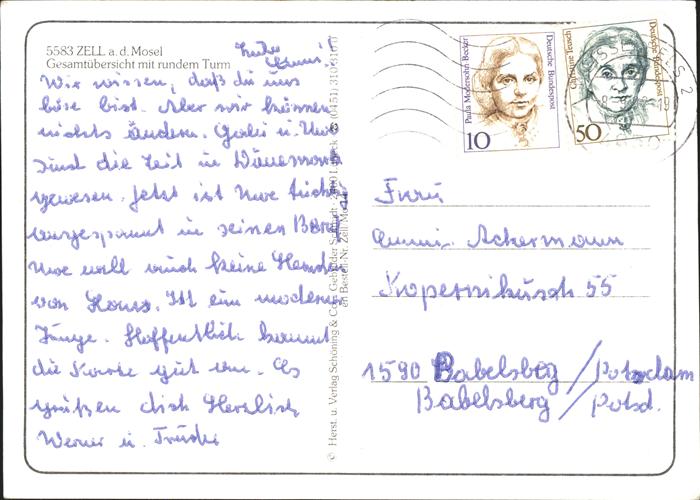 5583 ZELL a. d. Mosel
Gesamtübersicht mit rundem Turm
Liebe
Wir wissen, daß du uns
böse bist. Aber wir können
nichts ändern. Gabi u. Uwe
sind die Zeit in Dänemark
gewesen. Jetzt ist Uwe
eingespannt in seinem
Uwe will auch keine Hemden
von Horst. Ist ein moderner
Junge. Hoffentlich kommt
die Karte gut an. Es
grüßen dich Herzlich
Werner u. Trudi
© Herst. u. Verlag Schöning & Co + Gebrüder Schmidt · 2400 Lübeck
Bestell-Nr. Zell Mo
Paula Modersohn-Becker
Deutsche Bundespost
10
Christine Teusch
Deutsche Bundespost
50
Frau
Ackermann
Kopernikusstr. 55
1590 Babelsberg / Potsdam
Babelsberg / Potsd.